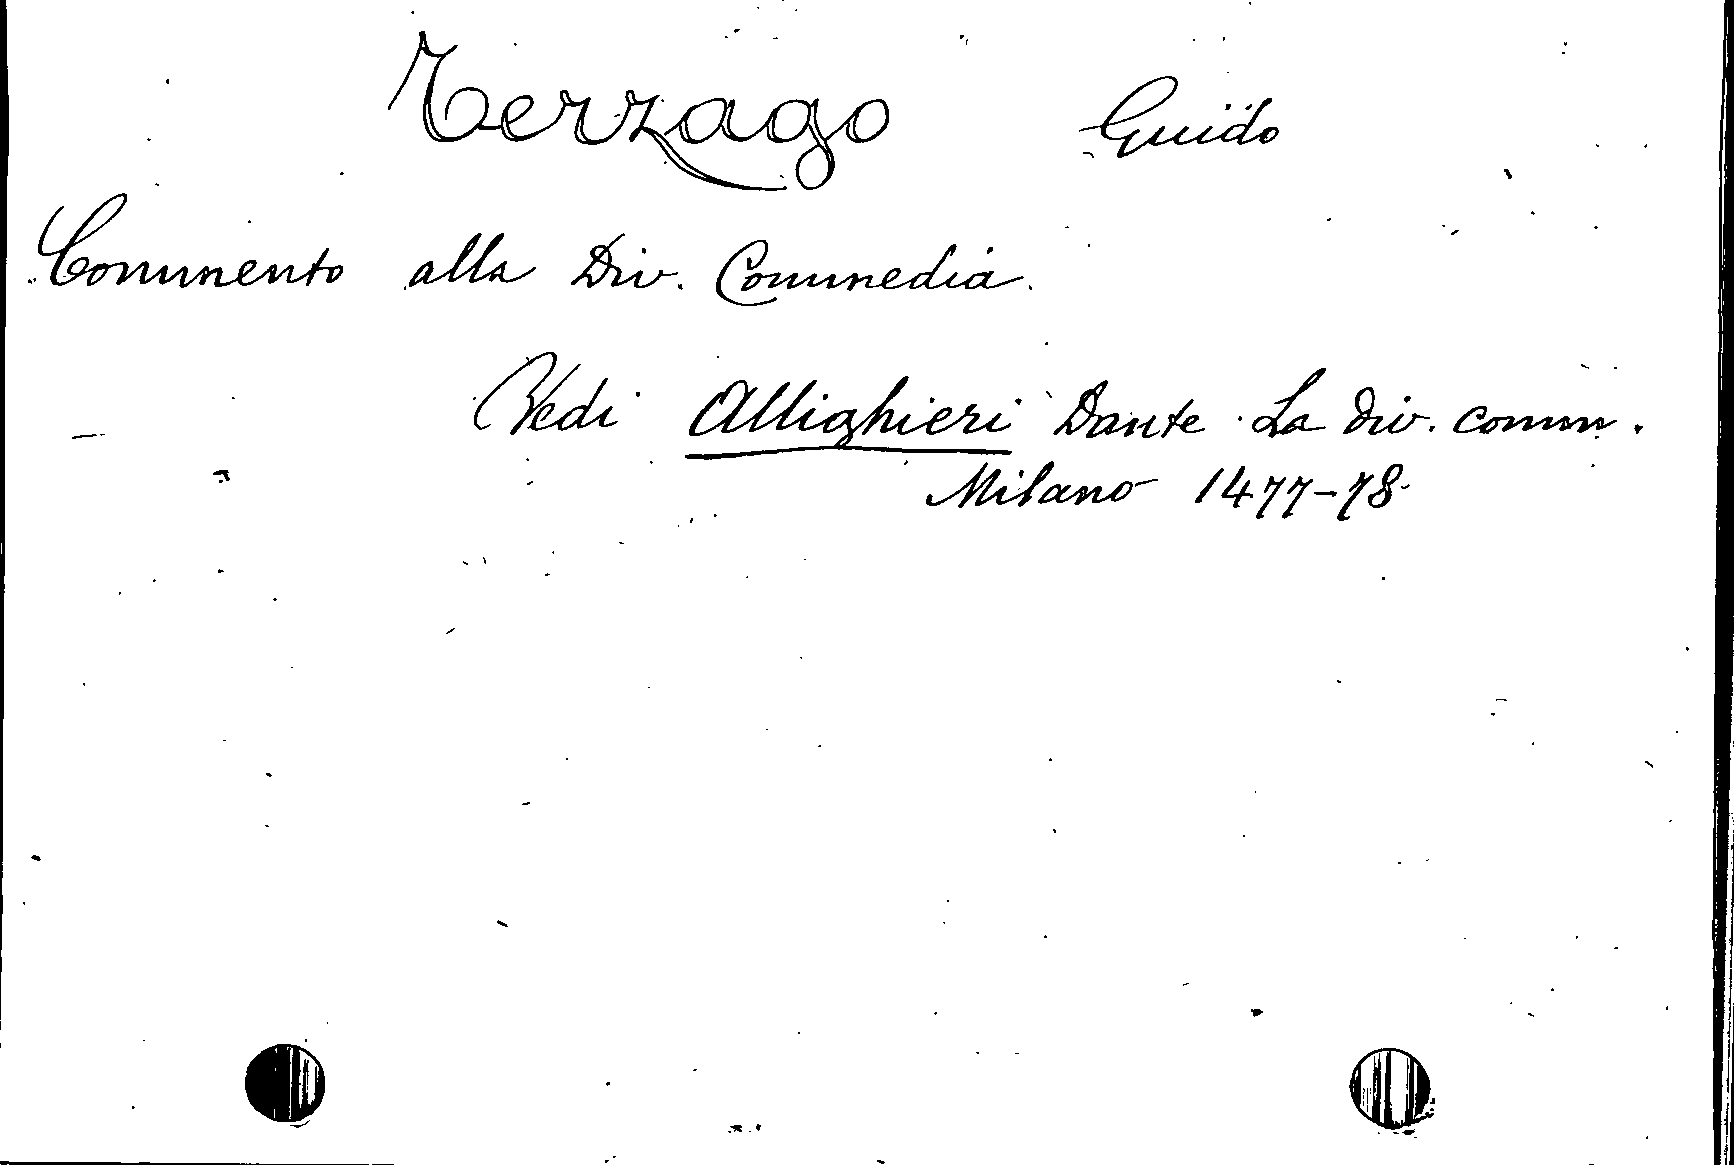 Terzago Guido
Commento alla Div. Commedia.
Vedi Allighieri Dante La Div. comm.
Milano 1477-78